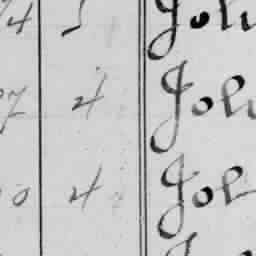 74 5 Joh
7 4 Joh
0 4 Joh